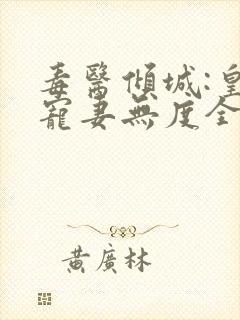 毒醫傾城:皇
寵妻無度全
黃廣林